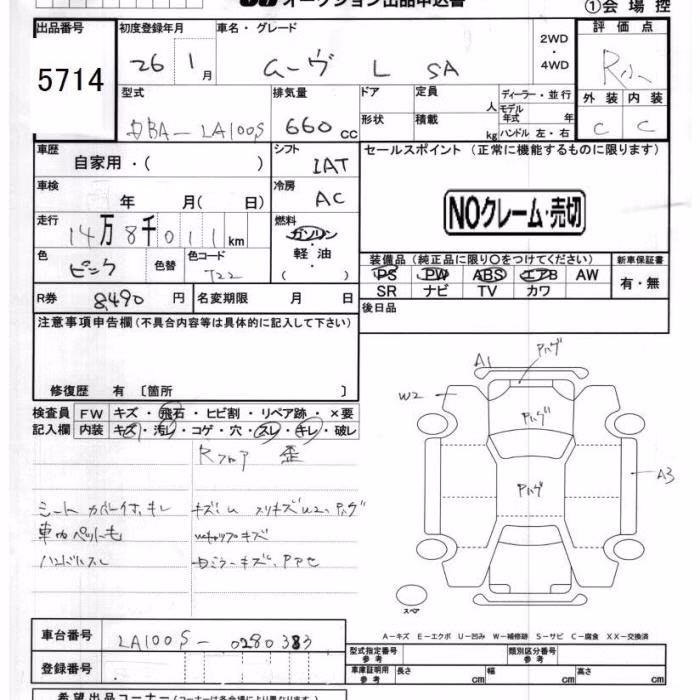 オークション出品申込書
①会場控
出品番号 初度登録年月 車名・グレード 2WD・4WD 評価点
5714 26 1月 ムーヴ L SA
外装 内装
C C
型式 排気量 ドア 定員 人 ディーラー・並行
モデル年式 年
DBA-LA100S 660cc 形状 積載 kg ハンドル 左・右
車歴 自家用・( ) シフト IAT セールスポイント (正常に機能するものに限ります)
車検 年 月(日) 冷房 AC
NOクレーム・売切
走行 14万8千011km 燃料 ガソリン・軽油・( )
色 ピンク 色替 色コード T22
装備品(純正品に限り○をつけてください) 新車保証書
PS PW ABS エアB AW 有・無
SR ナビ TV カワ
R券 8,490円 名変期限 月 日 後日品
注意事項申告欄(不具合内容等は具体的に記入して下さい)
修復歴 有 〔箇所 〕
検査員記入欄 FW キズ・飛石・ヒビ割・リペア跡・×要
内装 キズ・汚レ・コゲ・穴・スレ・キレ・破レ
Rフロア 歪
シートカバー付、キレ キズ、U スリキズ W2、Pハゲ
キャップキズ
ハンドルスレ
A1 Pハゲ
W2
Pハゲ
Pハゲ
A3
スペア
A-キズ E-エクボ U-凹み W-補修跡 S-サビ C-腐食 XX-交換済
車台番号 LA100S-0280383
型式指定番号 参考 類別区分番号 参考
登録番号 車庫証明用 参考 長さ cm 幅 cm 高さ cm
希望出品コーナー(コーナーは各会場により異なります)